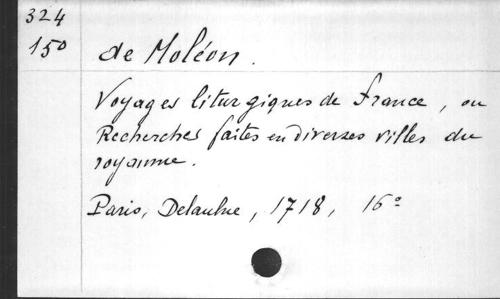 324
150
de Moléon.
Voyages liturgiques de France, ou
Recherches faites en diverses villes du
royaume.
Paris, Delaulne, 1718, 16°